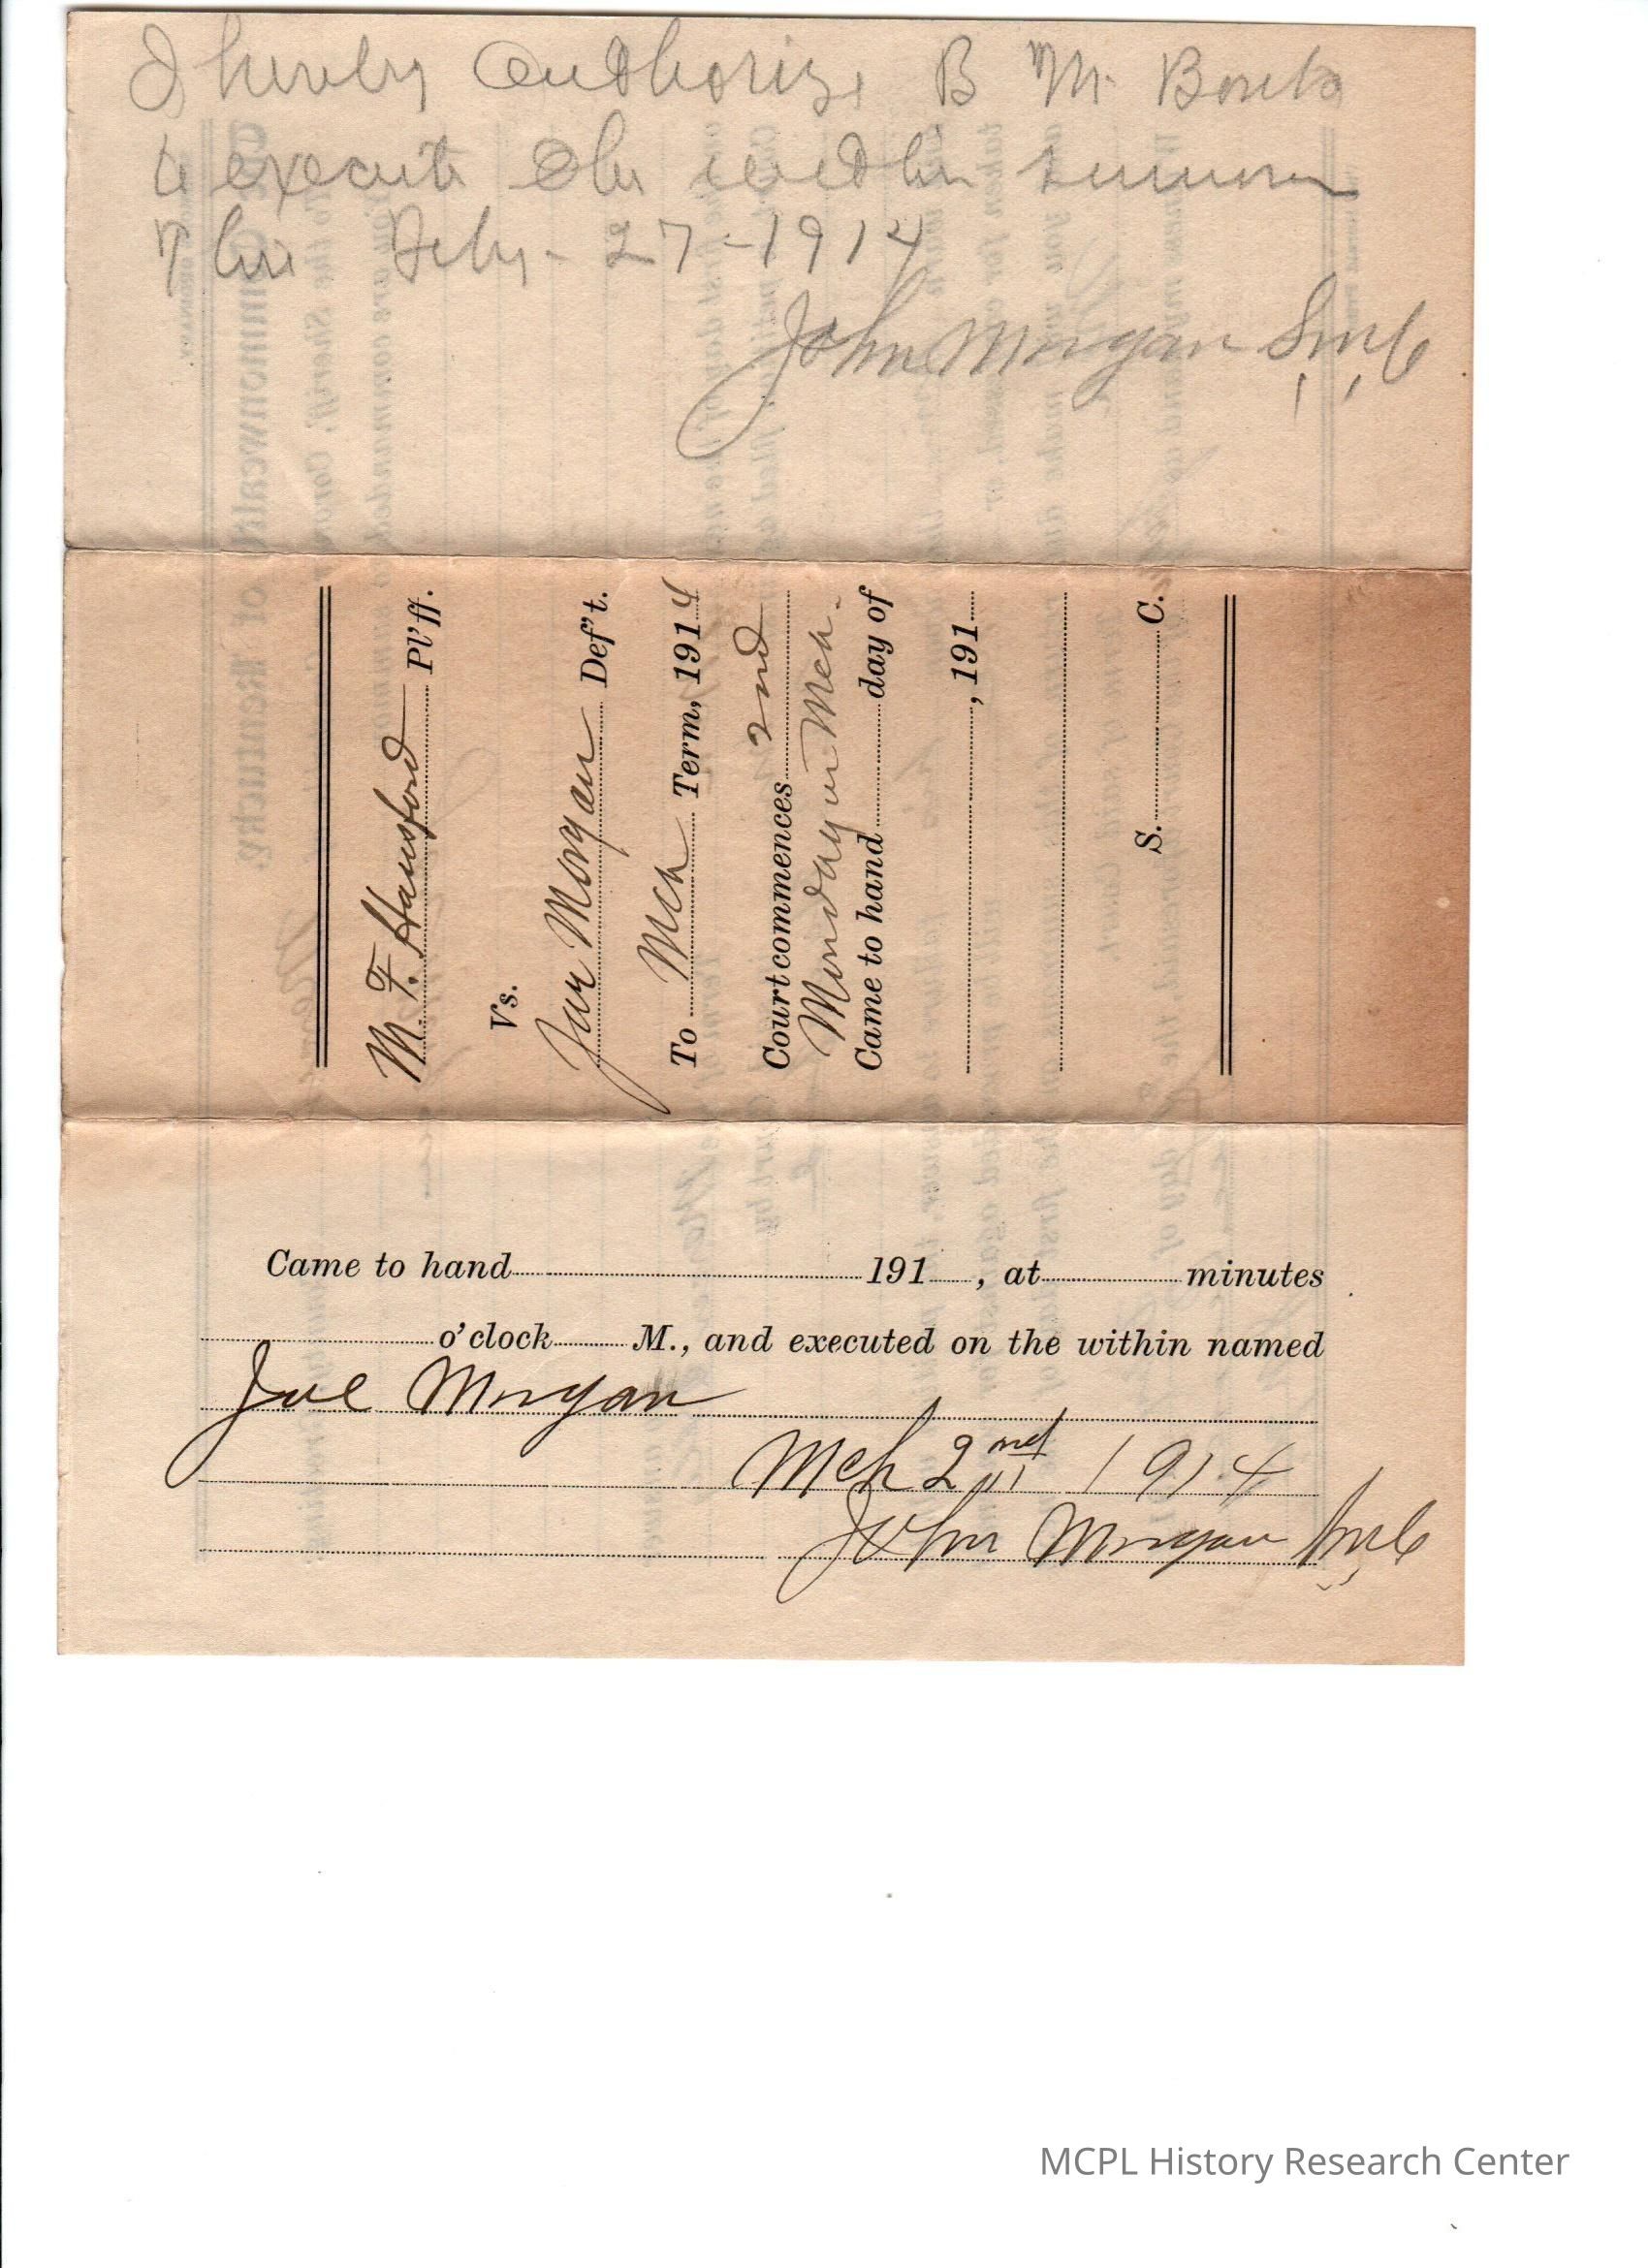 I hereby Authorize B M
to execute the within summon
This Feby - 27 - 1914
John Morgan S.M.C
M. F. Hansford Pl'ff.
Vs.
Joe Morgan Def't.
To Mch Term, 1914
Court commences 2nd
Monday in Mch.
Came to hand day of
, 191
S. C.
Came to hand 191 , at minutes
o'clock M., and executed on the within named
Joe Morgan
Mch 2nd 1914
John Morgan S.M.C
MCPL History Research Center